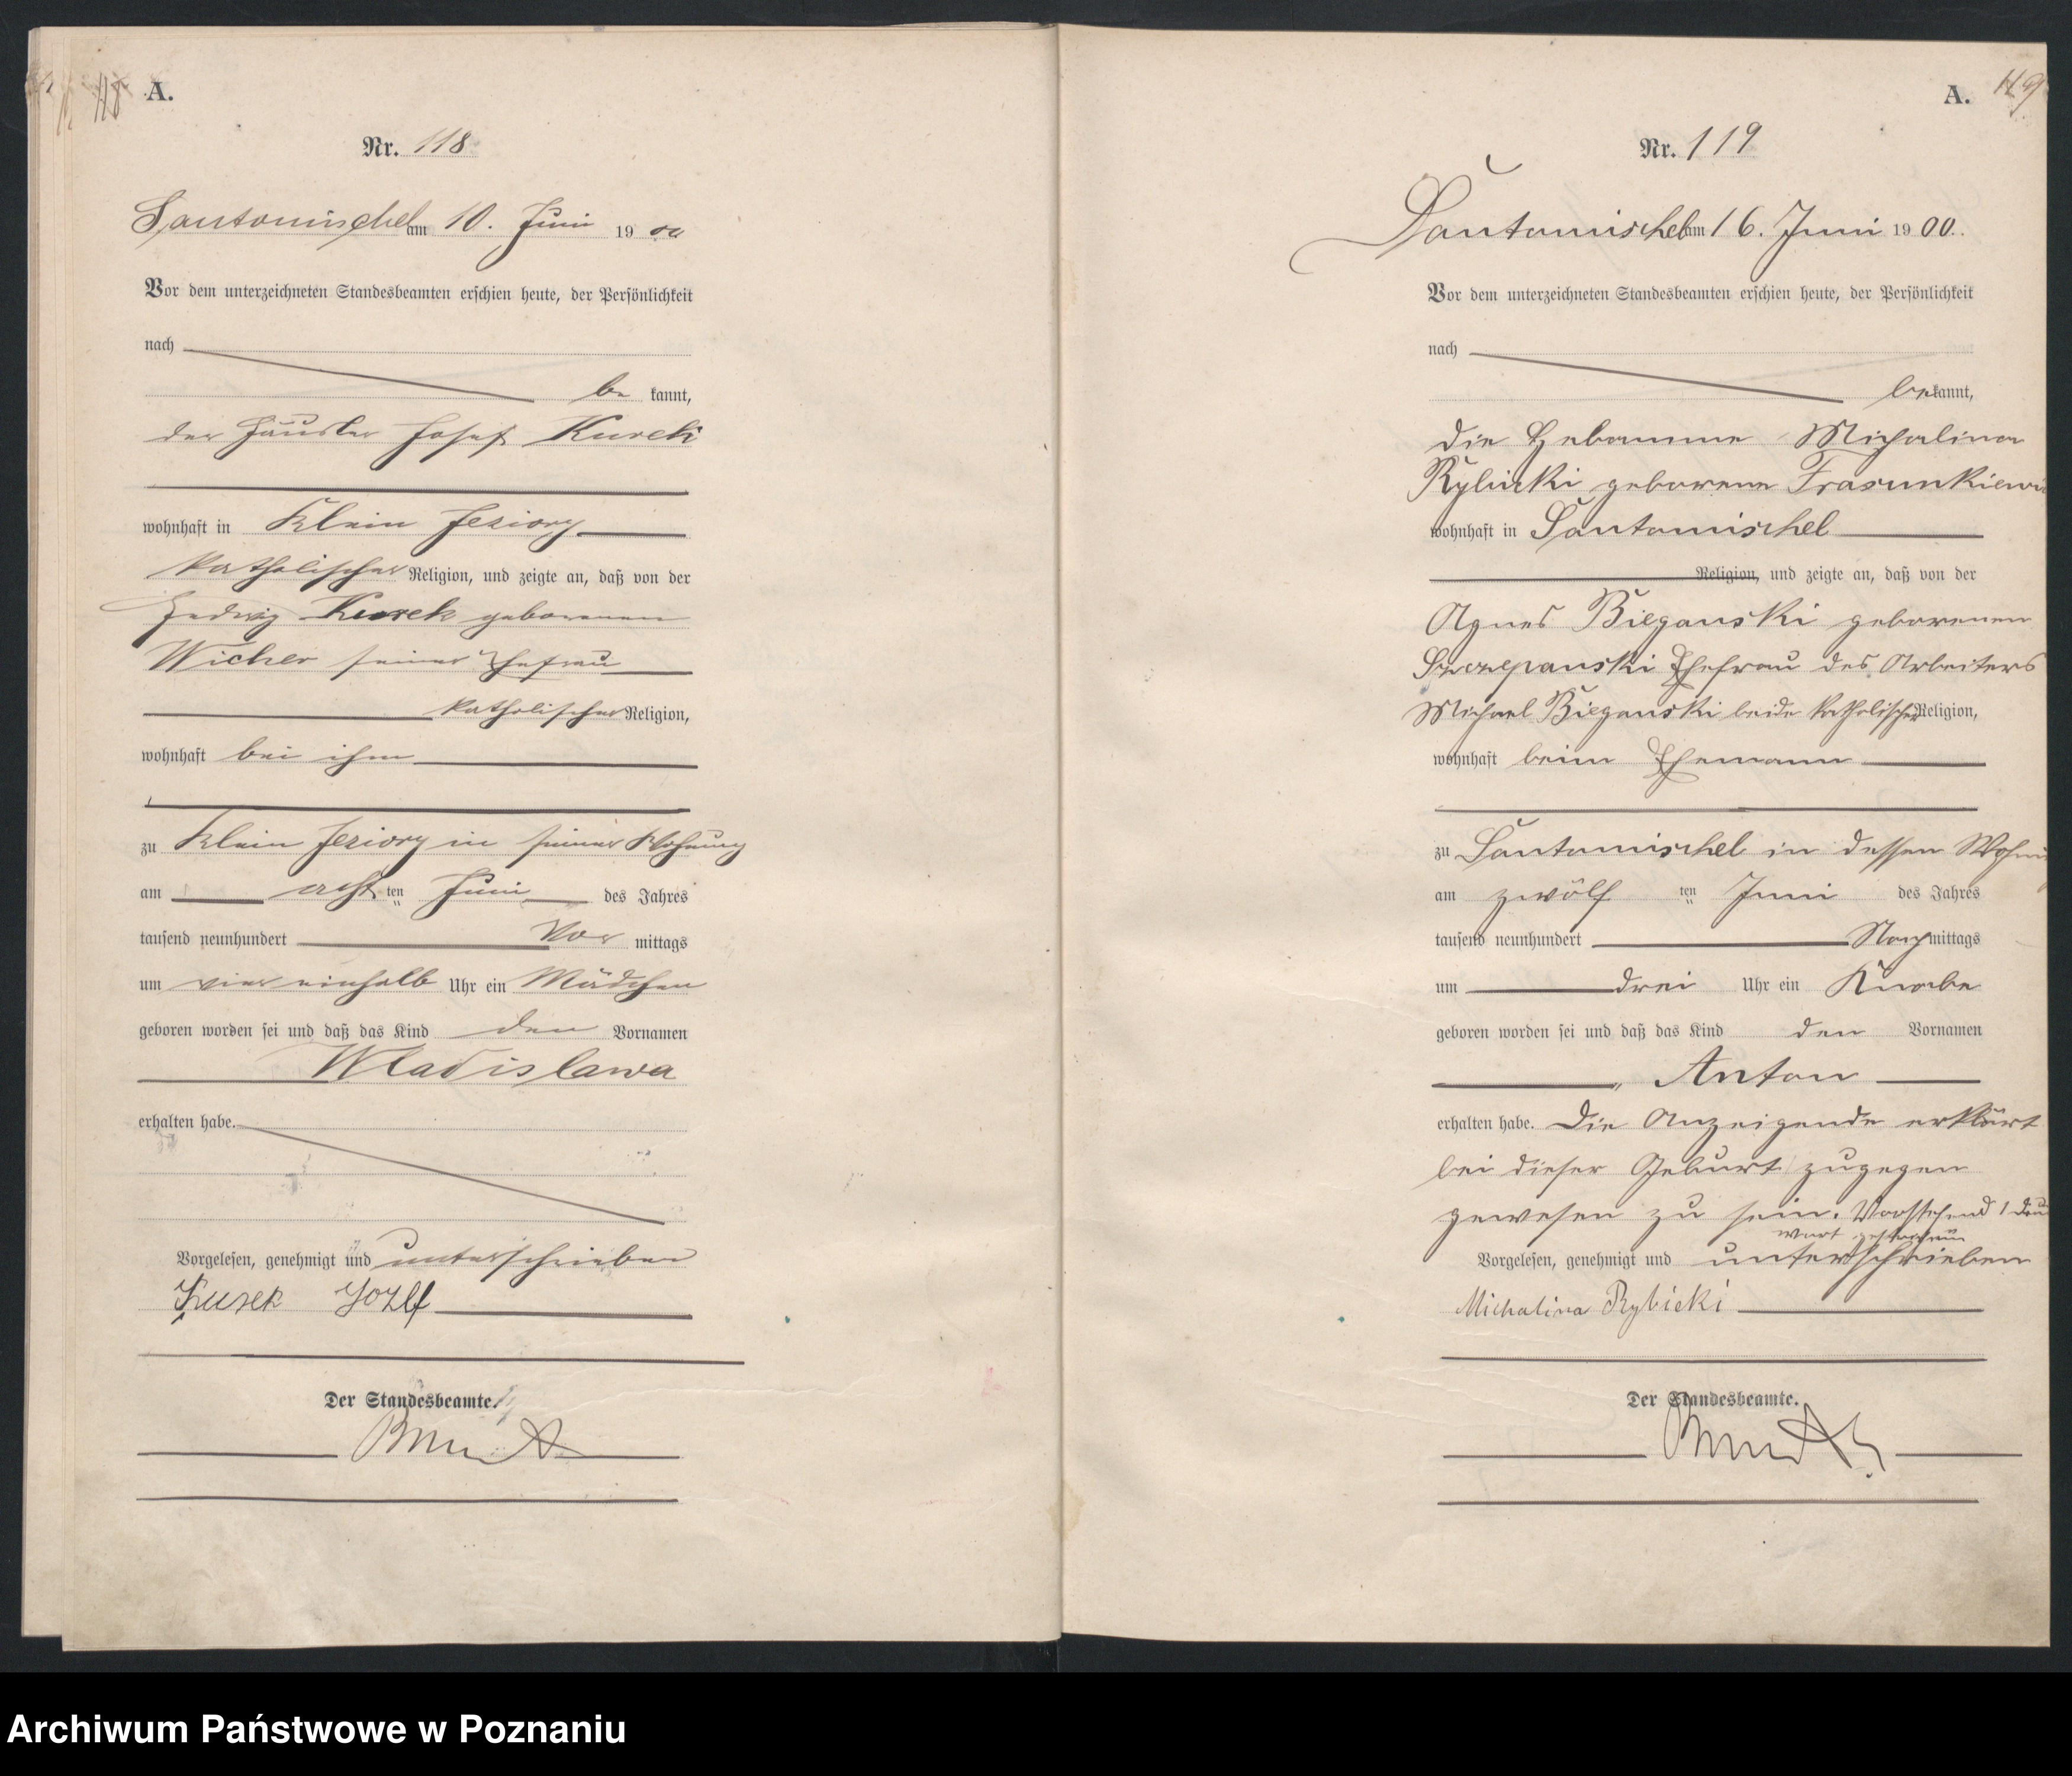 118 A.
Nr. 118
Santomischel am 10. Juni 1900
Vor dem unterzeichneten Standesbeamten erschien heute, der Persönlichkeit
nach
be kannt,
der Häusler Josef
wohnhaft in Klein Jeziory
katholischer Religion, und zeigte an, daß von der
Hedwig Kusek geborenen
Wicher seiner Ehefrau
katholischer Religion,
wohnhaft bei ihm
zu Klein Jeziory in seiner Wohnung
am acht ten Juni des Jahres
tausend neunhundert Vor mittags
um vier einhalb Uhr ein Mädchen
geboren worden sei und daß das Kind den Vornamen
Wladislawa
erhalten habe.
Vorgelesen, genehmigt und unterschrieben
Kusek Jozef
Der Standesbeamte.
A. 119
Nr. 119
Santomischel am 16. Juni 1900.
Vor dem unterzeichneten Standesbeamten erschien heute, der Persönlichkeit
nach
bekannt,
die Hebamme Michalina
Rybicki geborene
wohnhaft in Santomischel
Religion, und zeigte an, daß von der
Agnes Bieganski geborenen
Szczepanski Ehefrau des Arbeiters
Michael Bieganski beide katholischer Religion,
wohnhaft beim Ehemann
zu Santomischel in dessen
am zwölf ten Juni des Jahres
tausend neunhundert Nach mittags
um drei Uhr ein Knabe
geboren worden sei und daß das Kind den Vornamen
Anton
erhalten habe. Die Anzeigende erklärt
bei dieser Geburt zugegen
gewesen zu sein. Vorstehend 1
Wort gestrichen
Vorgelesen, genehmigt und unterschrieben
Michalina Rybicki
Der Standesbeamte.
Archiwum Państwowe w Poznaniu